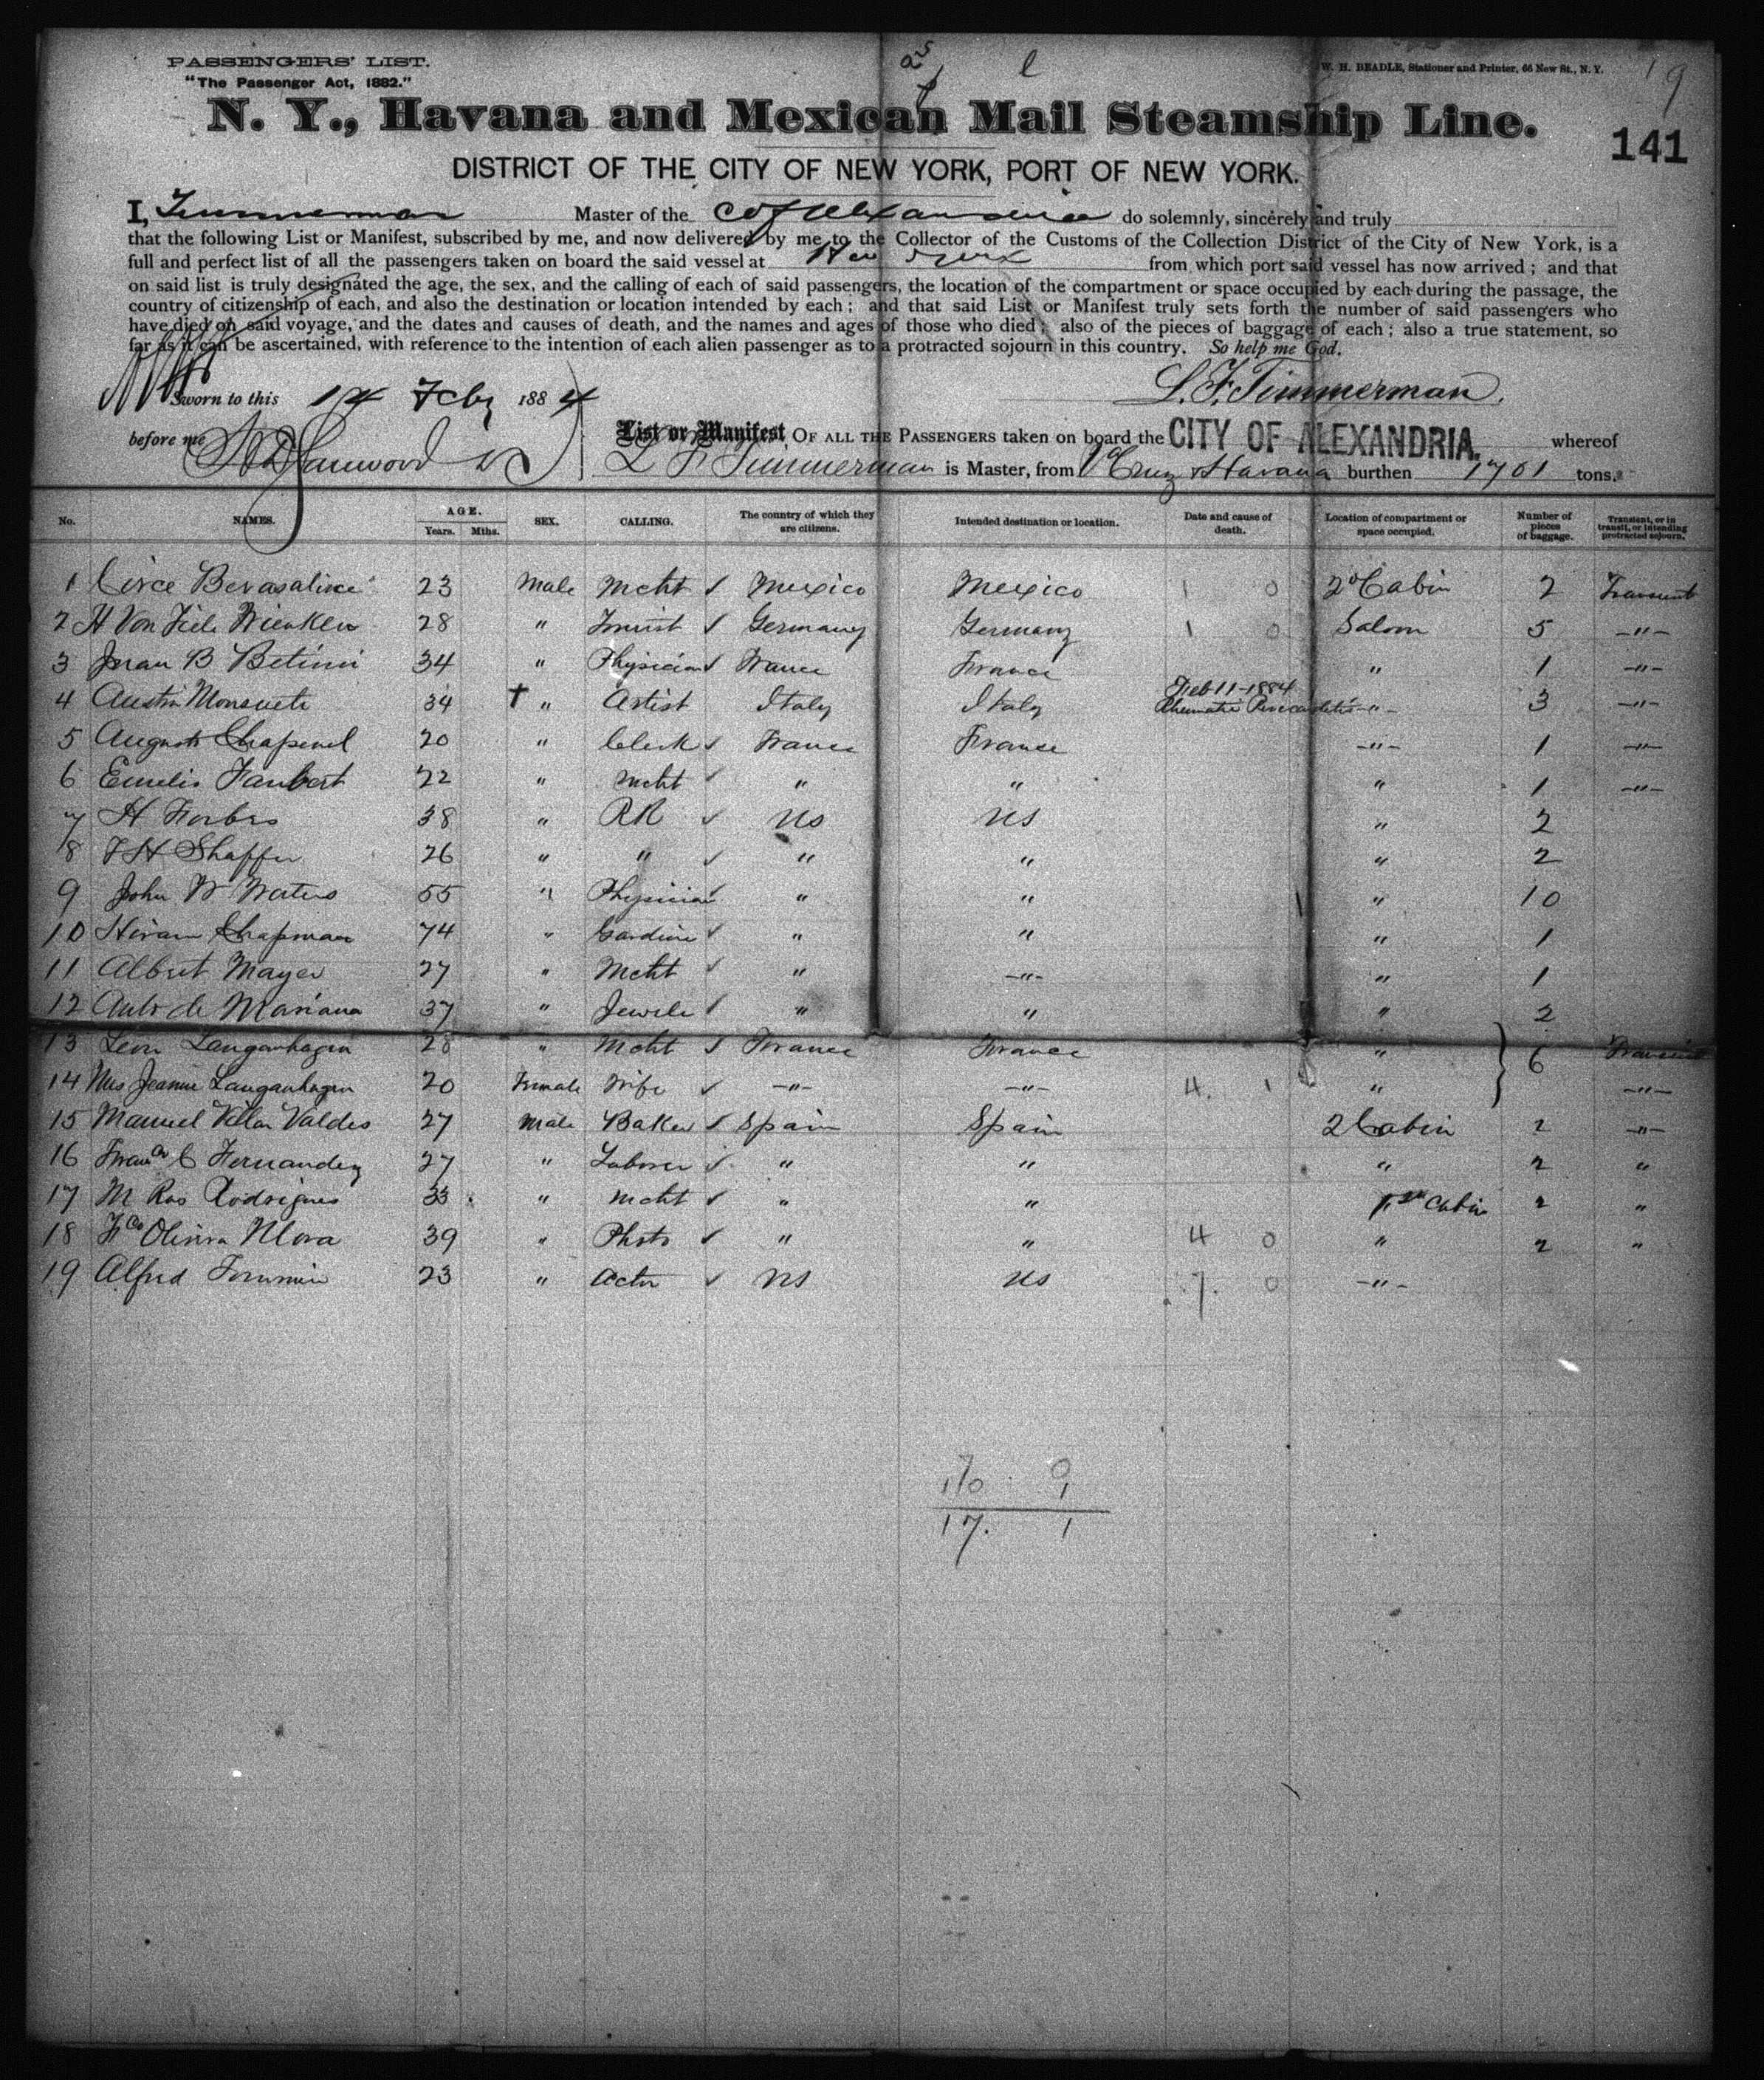 PASSENGERS' LIST.
"The Passenger Act, 1882."
W. H. BEADLE, Stationer and Printer, 66 New St., N. Y.
19
N. Y., Havana and Mexican Mail Steamship Line.
141
DISTRICT OF THE CITY OF NEW YORK, PORT OF NEW YORK.
I, Timmerman Master of the C of Alexandria do solemnly, sincerely and truly
that the following List or Manifest, subscribed by me, and now delivered by me to the Collector of the Customs of the Collection District of the City of New York, is a
full and perfect list of all the passengers taken on board the said vessel at New York from which port said vessel has now arrived; and that
on said list is truly designated the age, the sex, and the calling of each of said passengers, the location of the compartment or space occupied by each during the passage, the
country of citizenship of each, and also the destination or location intended by each; and that said List or Manifest truly sets forth the number of said passengers who
have died on said voyage, and the dates and causes of death, and the names and ages of those who died; also of the pieces of baggage of each; also a true statement, so
far as it can be ascertained, with reference to the intention of each alien passenger as to a protracted sojourn in this country. So help me God.
Sworn to this 14 Feby 1884 L. F. Timmerman.
before me List or Manifest OF ALL THE PASSENGERS taken on board the CITY OF ALEXANDRIA. whereof
L F Timmerman is Master, from V Cruz & Havana burthen 1701 tons.
No. NAMES. AGE. Years. Mths. SEX. CALLING. The country of which they are citizens. Intended destination or location. Date and cause of death. Location of compartment or space occupied. Number of pieces of baggage. Transient, or in transit, or intending protracted sojourn.
1 23 Male Mcht ✓ Mexico Mexico 1 0 2d Cabin 2 Transient
2 H Von Tiele Wienken 28 " Tourist ✓ Germany Germany 1 0 Saloon 5 -"-
3 Juan B Betini 34 " Physician ✓ France France " 1 -"-
4 Austin Monsuete 34 † " Artist Italy Italy Feb 11-1884 Rheumatic Pericarditis -"- 3 -"-
5 August Chapenel 20 " Clerk ✓ France France -"- 1 -"-
6 Emelio Faubert 22 " Mcht ✓ " " " 1 -"-
7 H Forbes 38 " RR ✓ US US " 2
8 F H Shaffer 26 " " ✓ " " " 2
9 John W Waters 55 " Physician ✓ " " " 10
10 Hiram Chapman 74 " Gardine ✓ " " " 1
11 Albert Mayer 27 " Mcht ✓ " -"- " 1
12 Anto de Mariana 37 " Jewele ✓ " " " 2
13 Leon Langanhagen 28 " Mcht ✓ France France " 6 Transient
14 Mrs Jeanne Langanhagen 20 Female Wife ✓ -"- -"- 4. 1 " -"-
15 Manuel Villar Valdes 27 Male Baker ✓ Spain Spain 2 Cabin 2 -"-
16 Franco C Fernandez 27 " Laborer ✓ " " " 2 "
17 M Ros Rodrigues 33 " Mcht ✓ " " 1st Cabin 2 "
18 Fco Olivira Mora 39 " Photo ✓ " " 4 0 " 2 "
19 Alfred 23 " Actor ✓ US US 7. 0 -"-
7 0
10 1
17. 1